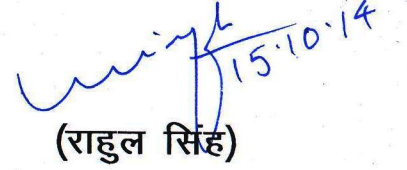 15.10.14
(राहुल सिंह)